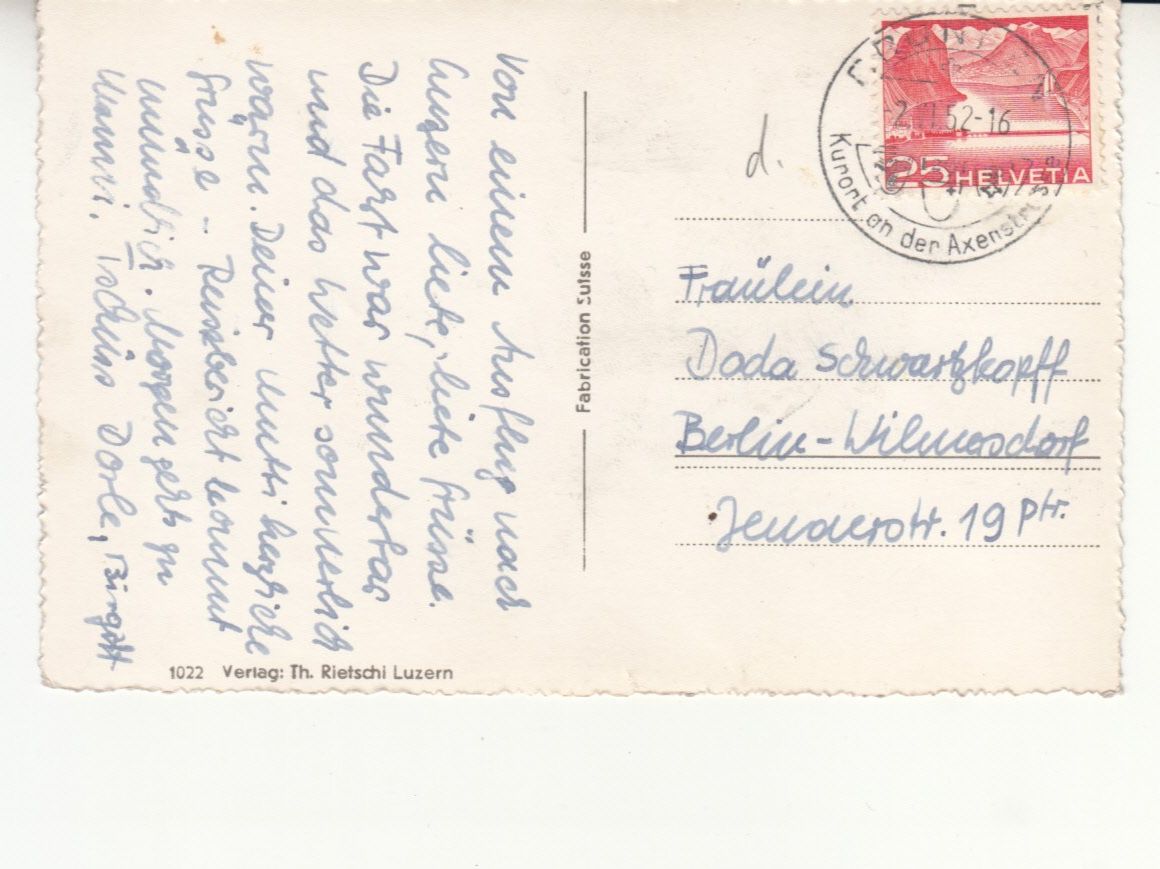 Von einem Ausflug nach
Luzern liebe, liebe Grüsse.
Die Fahrt war wunderbar
und das Wetter sommerlich
warm. Deiner Mutti herzliche
Grüsse – Reisebericht kommt
mündlich. Morgen geht's zu
Mammi. Tschüss Dorle, Birgitt
1022 Verlag: Th. Rietschi Luzern
Fabrication Suisse
d.
52-16
Kurort an der Axenstrasse
25 HELVETIA
Fräulein
Doda Schwartzkopff
Berlin-Wilmersdorf
Jenaerstr. 19 Ptr.